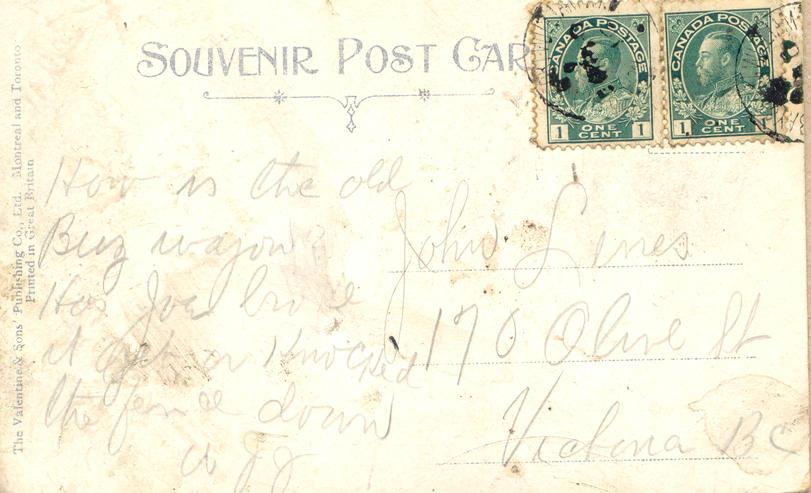 SOUVENIR POST CAR
CANADA POSTAGE
1 ONE CENT 1
CANADA POSTAGE
1 ONE CENT 1
The Valentine & Sons' Publishing Co., Ltd. Montreal and Toronto
Printed in Great Britain
How is the old
Buz wagon?
Has Joe broke
it yet or Knocked
the fence down
John Lines
170 Olive St
Victoria BC